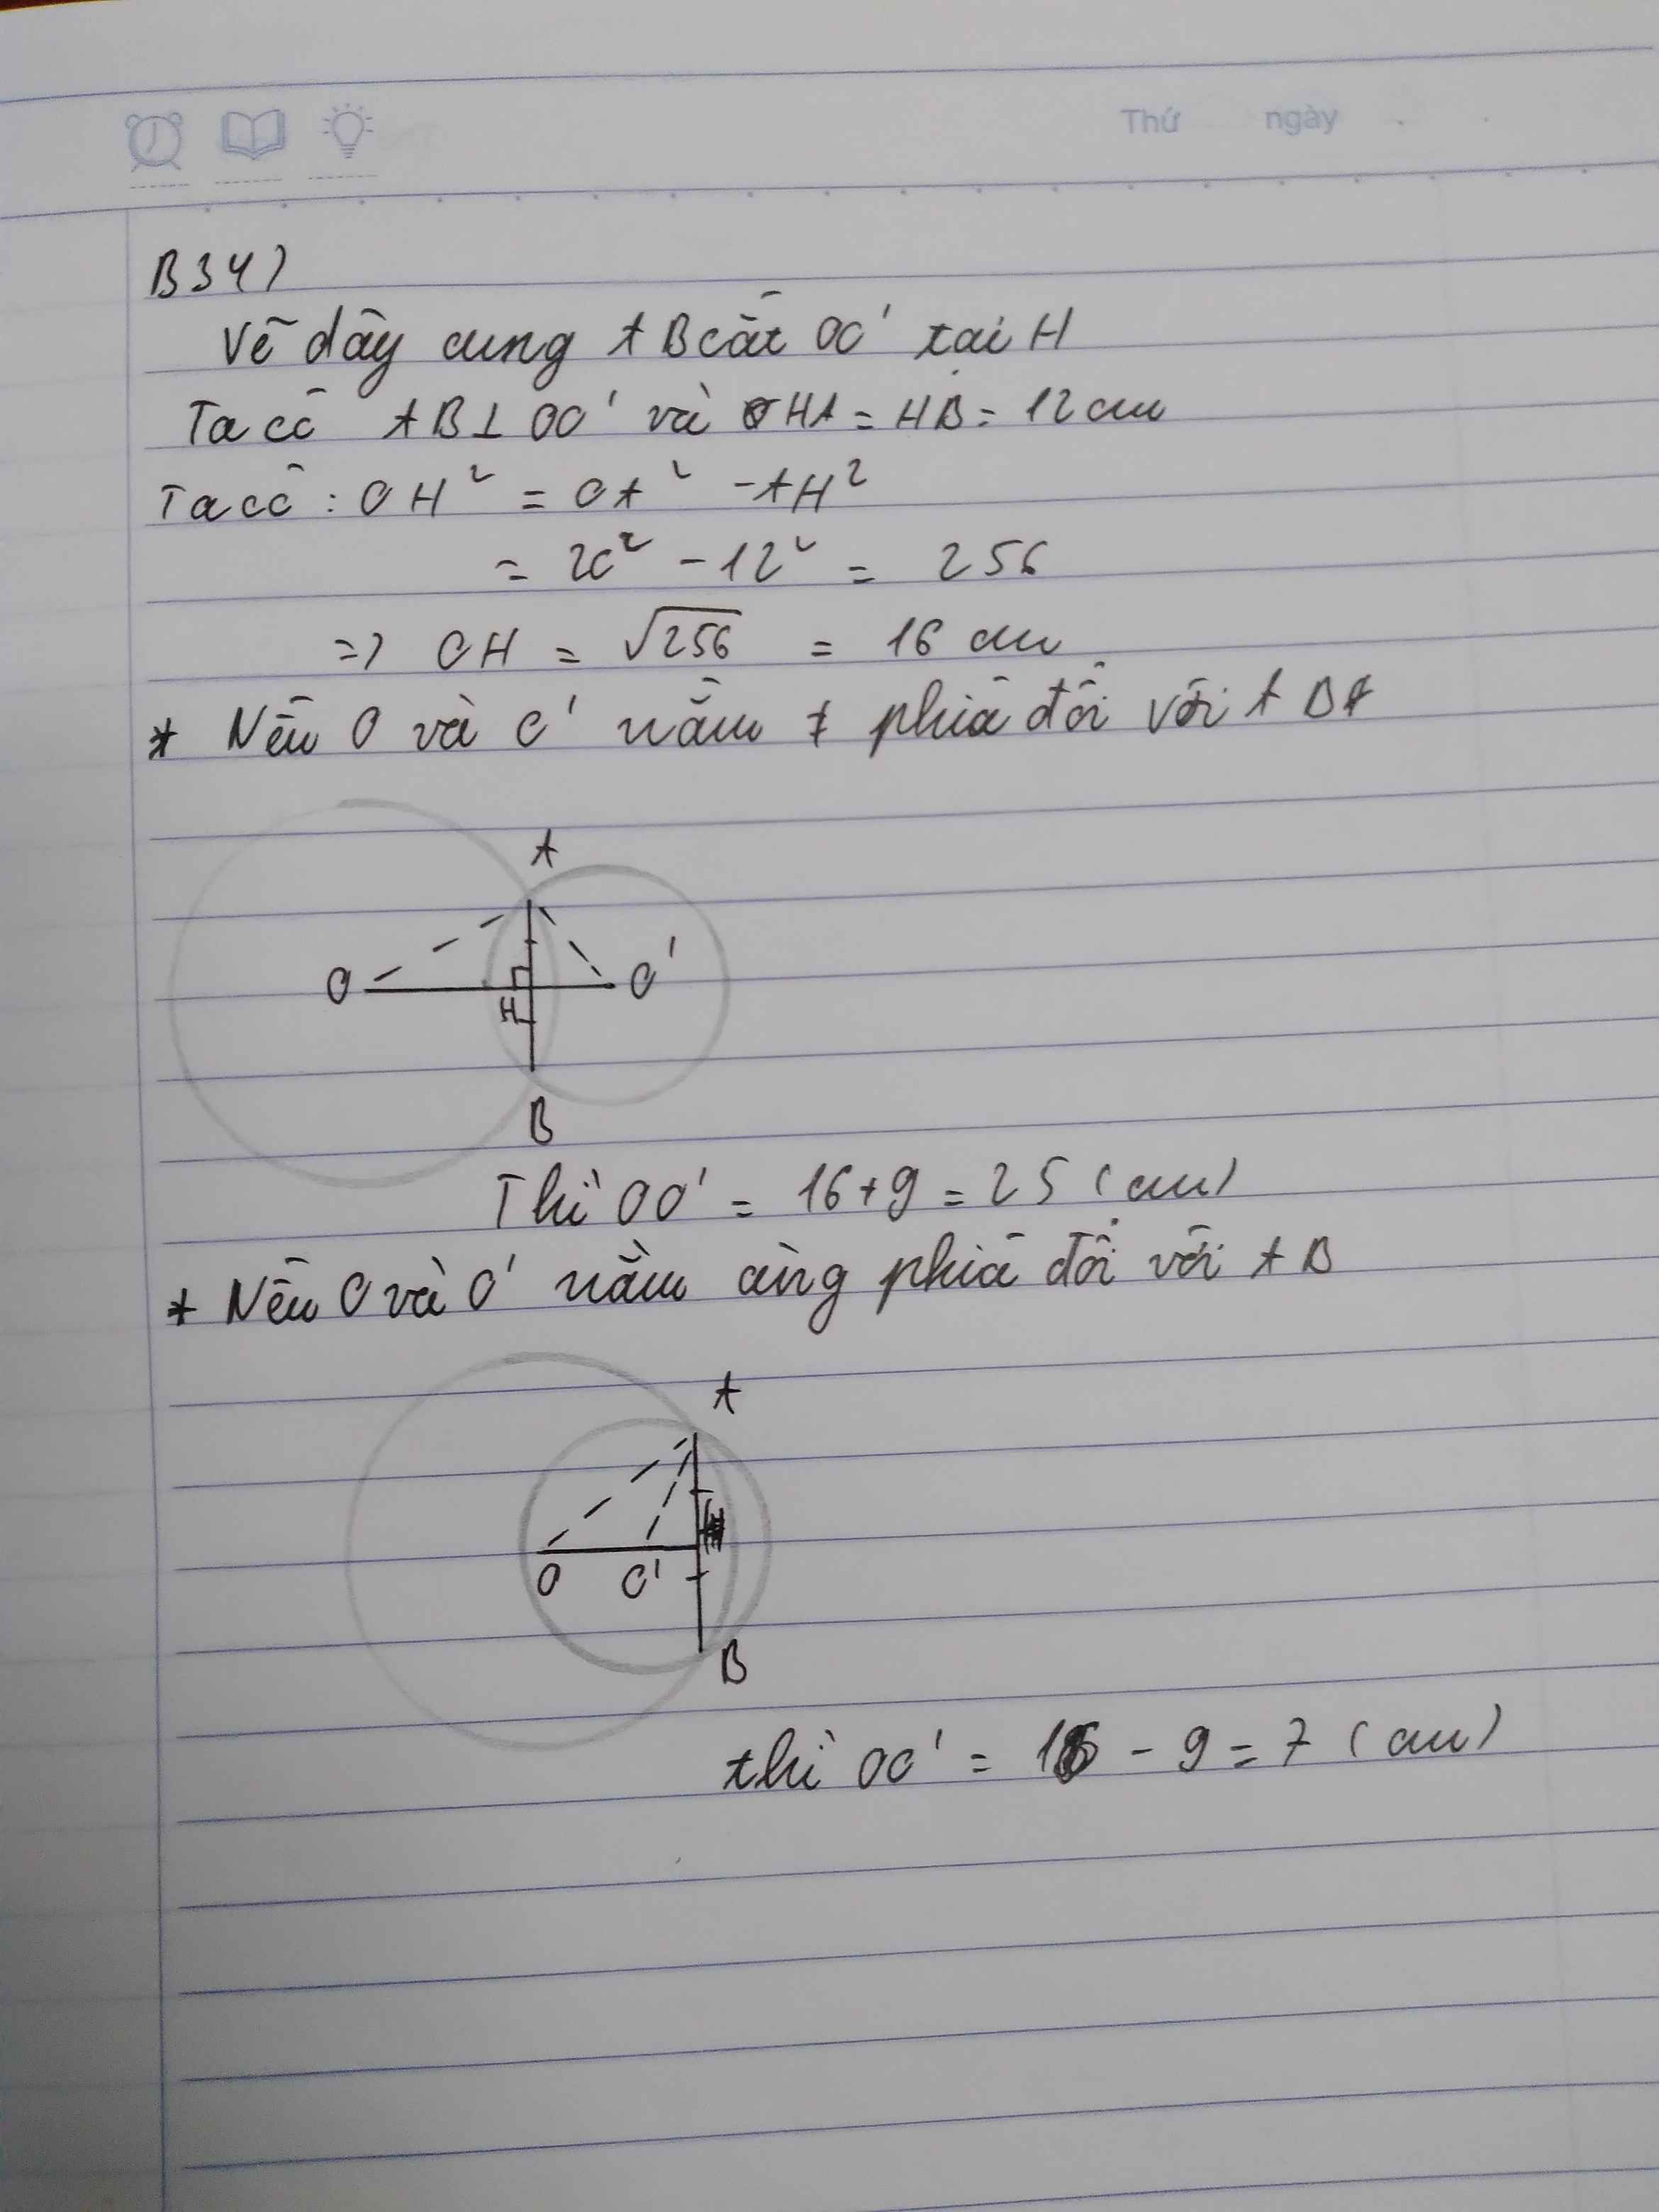 Thứ ngày
B34)
Vẽ dây cung AB cắt OO' tại H
Ta có AB⊥OO' và HA = HB = 12cm
Ta có : OH² = OA² - AH²
= 20² - 12² = 256
=> OH = √256 = 16 cm
* Nếu O và O' nằm ≠ phía đối với AB
A
O H O'
B
Thì OO' = 16+9 = 25 (cm)
* Nếu O và O' nằm cùng phía đối với AB
A
O O'
B
thì OO' = 16 - 9 = 7 (cm)